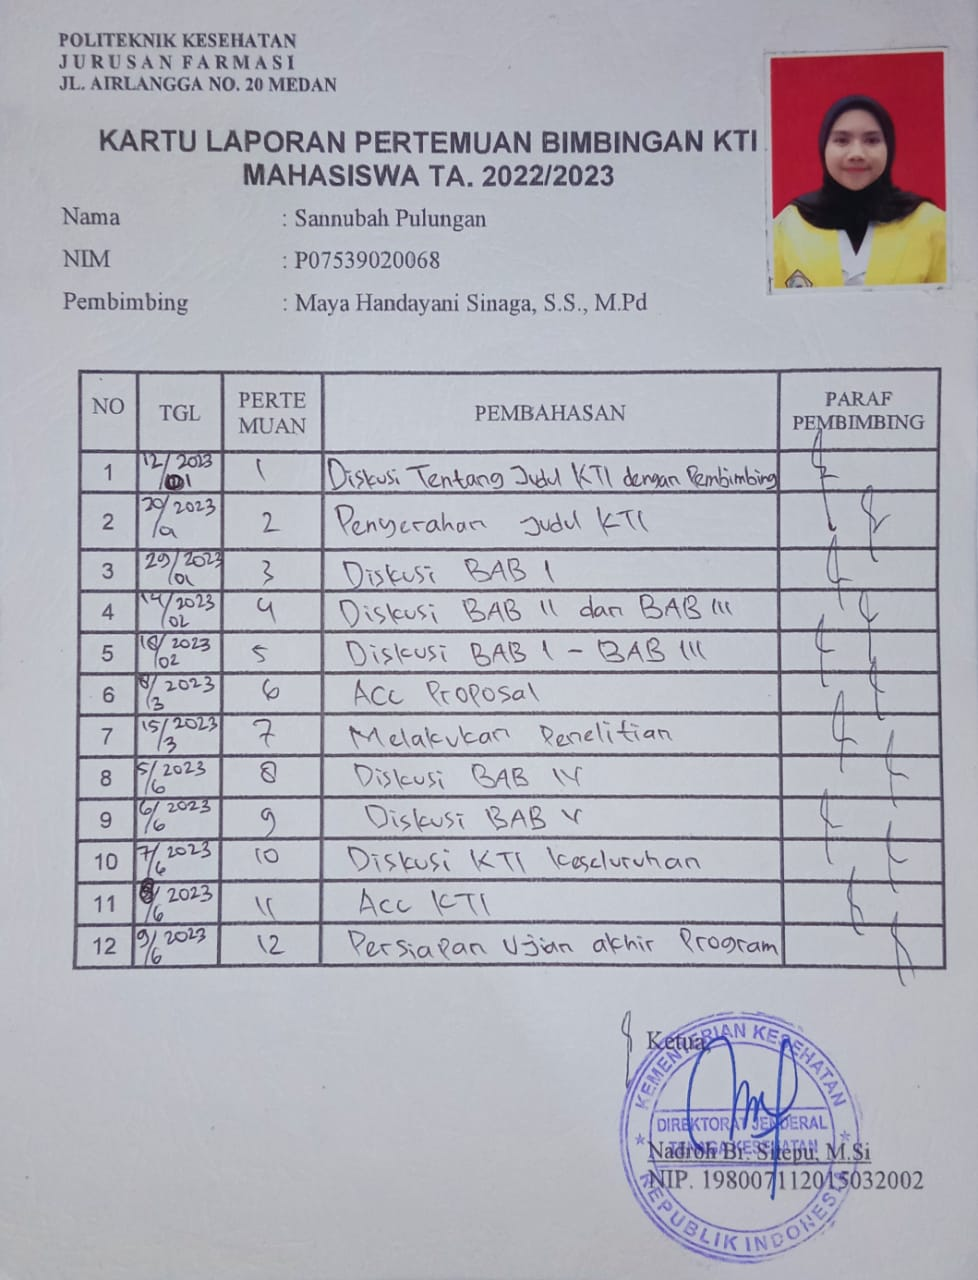 POLITEKNIK KESEHATAN
JURUSAN FARMASI
JL. AIRLANGGA NO. 20 MEDAN
KARTU LAPORAN PERTEMUAN BIMBINGAN KTI
MAHASISWA TA. 2022/2023
Nama : Sannubah Pulungan
NIM : P07539020068
Pembimbing : Maya Handayani Sinaga, S.S., M.Pd
NO TGL PERTE MUAN PEMBAHASAN PARAF PEMBIMBING
1 12/01 2023 1 Diskusi Tentang Judul KTI dengan Pembimbing
2 2023 2 Penyerahan Judul KTI
3 29/01 2023 3 Diskusi BAB I
4 14/02 2023 4 Diskusi BAB II dan BAB III
5 18/02 2023 5 Diskusi BAB I - BAB III
6 8/3 2023 6 Acc Proposal
7 15/3 2023 7 Melakukan Penelitian
8 5/6 2023 8 Diskusi BAB IV
9 6/6 2023 9 Diskusi BAB V
10 7/6 2023 10 Diskusi KTI Keseluruhan
11 8/6 2023 11 Acc KTI
12 9/6 2023 12 Persiapan Ujian akhir Program
Ketua,
KEMENTERIAN KESEHATAN
DIREKTORAT JENDERAL
TENAGA KESEHATAN
REPUBLIK INDONESIA
Nadroh Br. Sitepu, M.Si
NIP. 198007112015032002